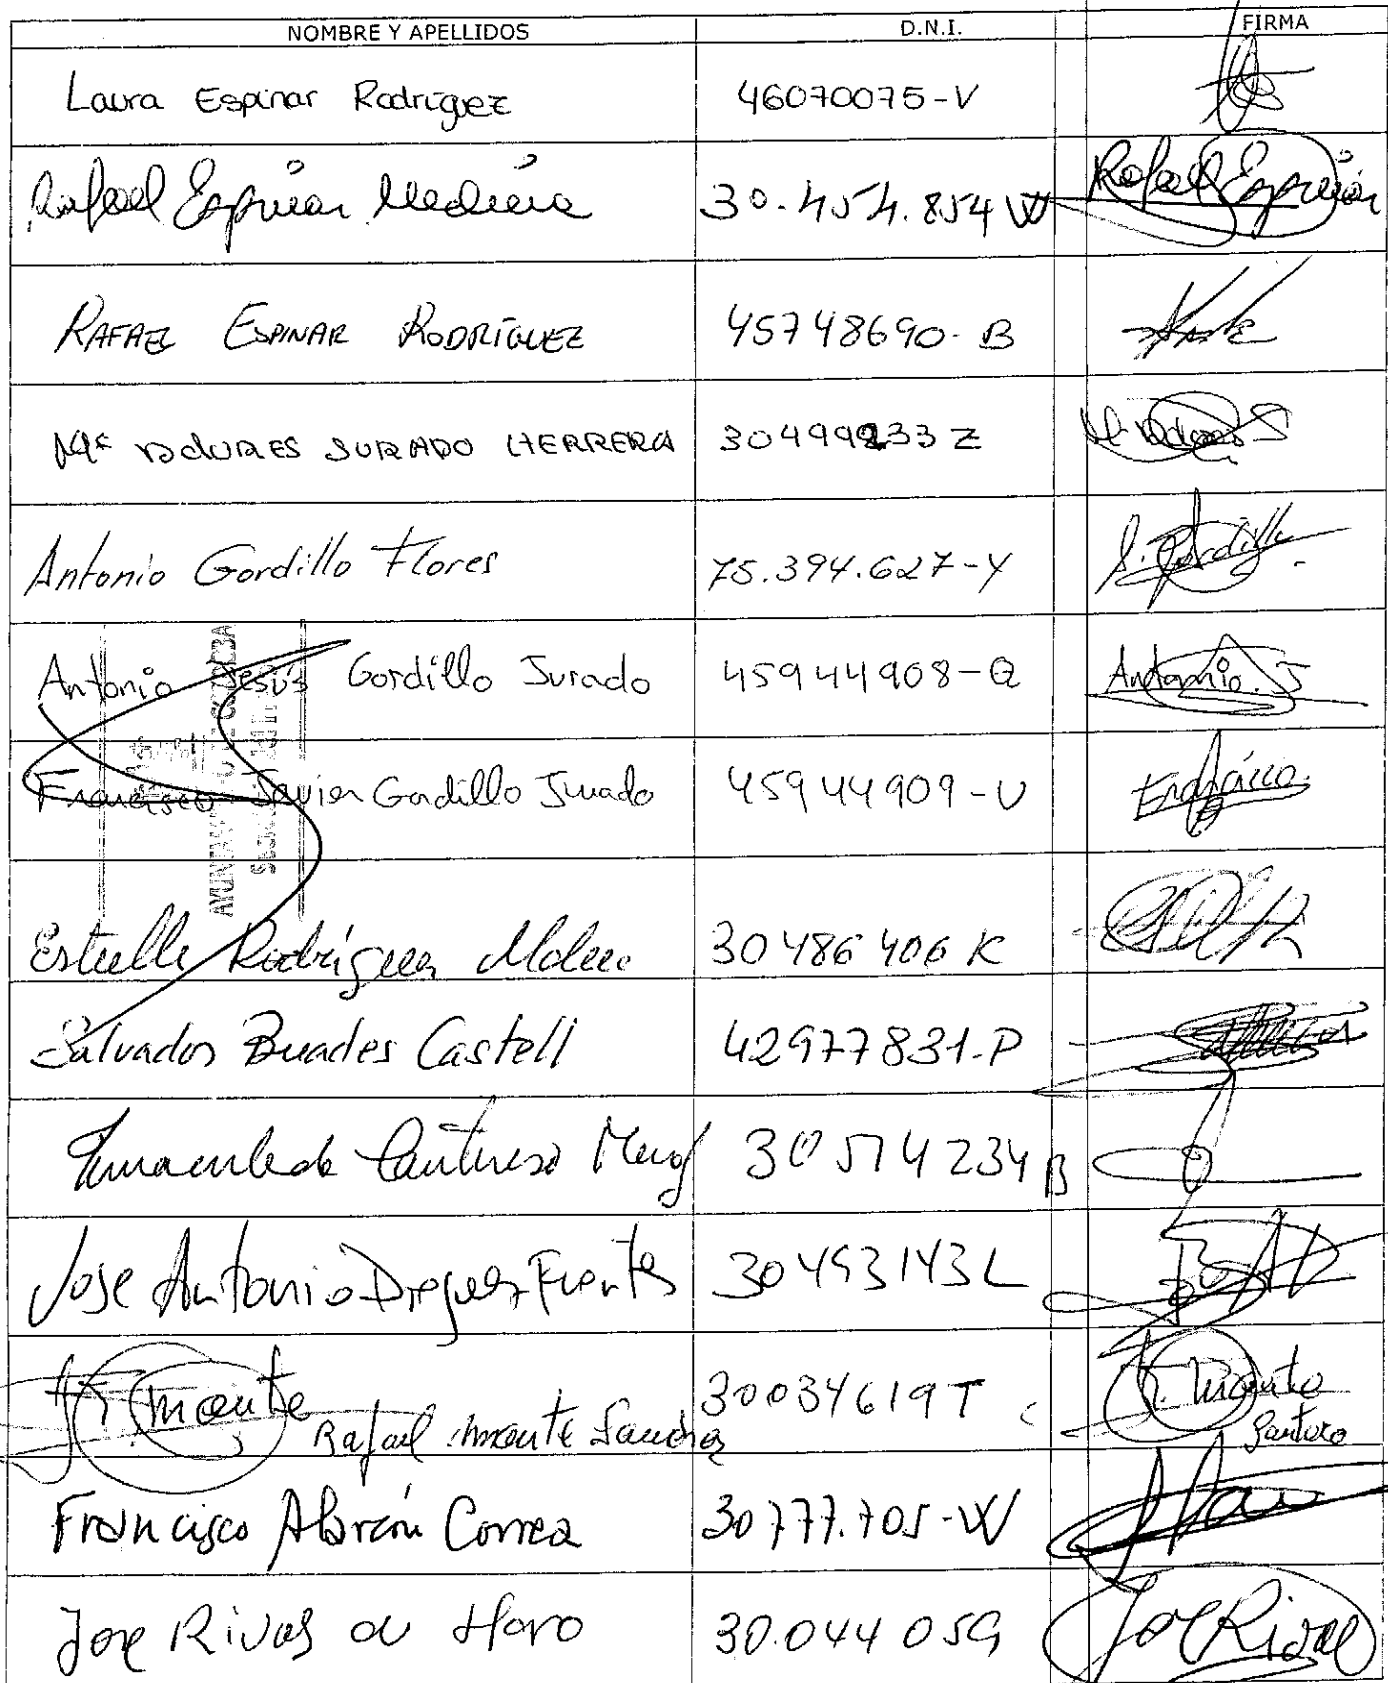 NOMBRE Y APELLIDOS D.N.I. FIRMA
Laura Espinar Rodriguez 46070075-V
Rafael Espinar Medina 30.454.854 W Rafael Espinar
RAFAEL ESPINAR RODRÍGUEZ 45748690-B
Mª DOLORES JURADO HERRERA 30499233 Z
Antonio Gordillo Flores 75.394.627-Y A. Gordillo
Antonio Jesús Gordillo Jurado 45944908-Q Antonio. J
Francisco Javier Gordillo Jurado 45944909-V Francisco
Rodríguez 30486406 K
Salvador Buades Castell 42977831-P
Inmaculada 30574234 B
Jose Antonio Fuentes 30493143L
30034619T
Rafael
Francisco Alarcón Correa 30777.705-W
Jose Rivas de Haro 30.044 059 Jose Rivas